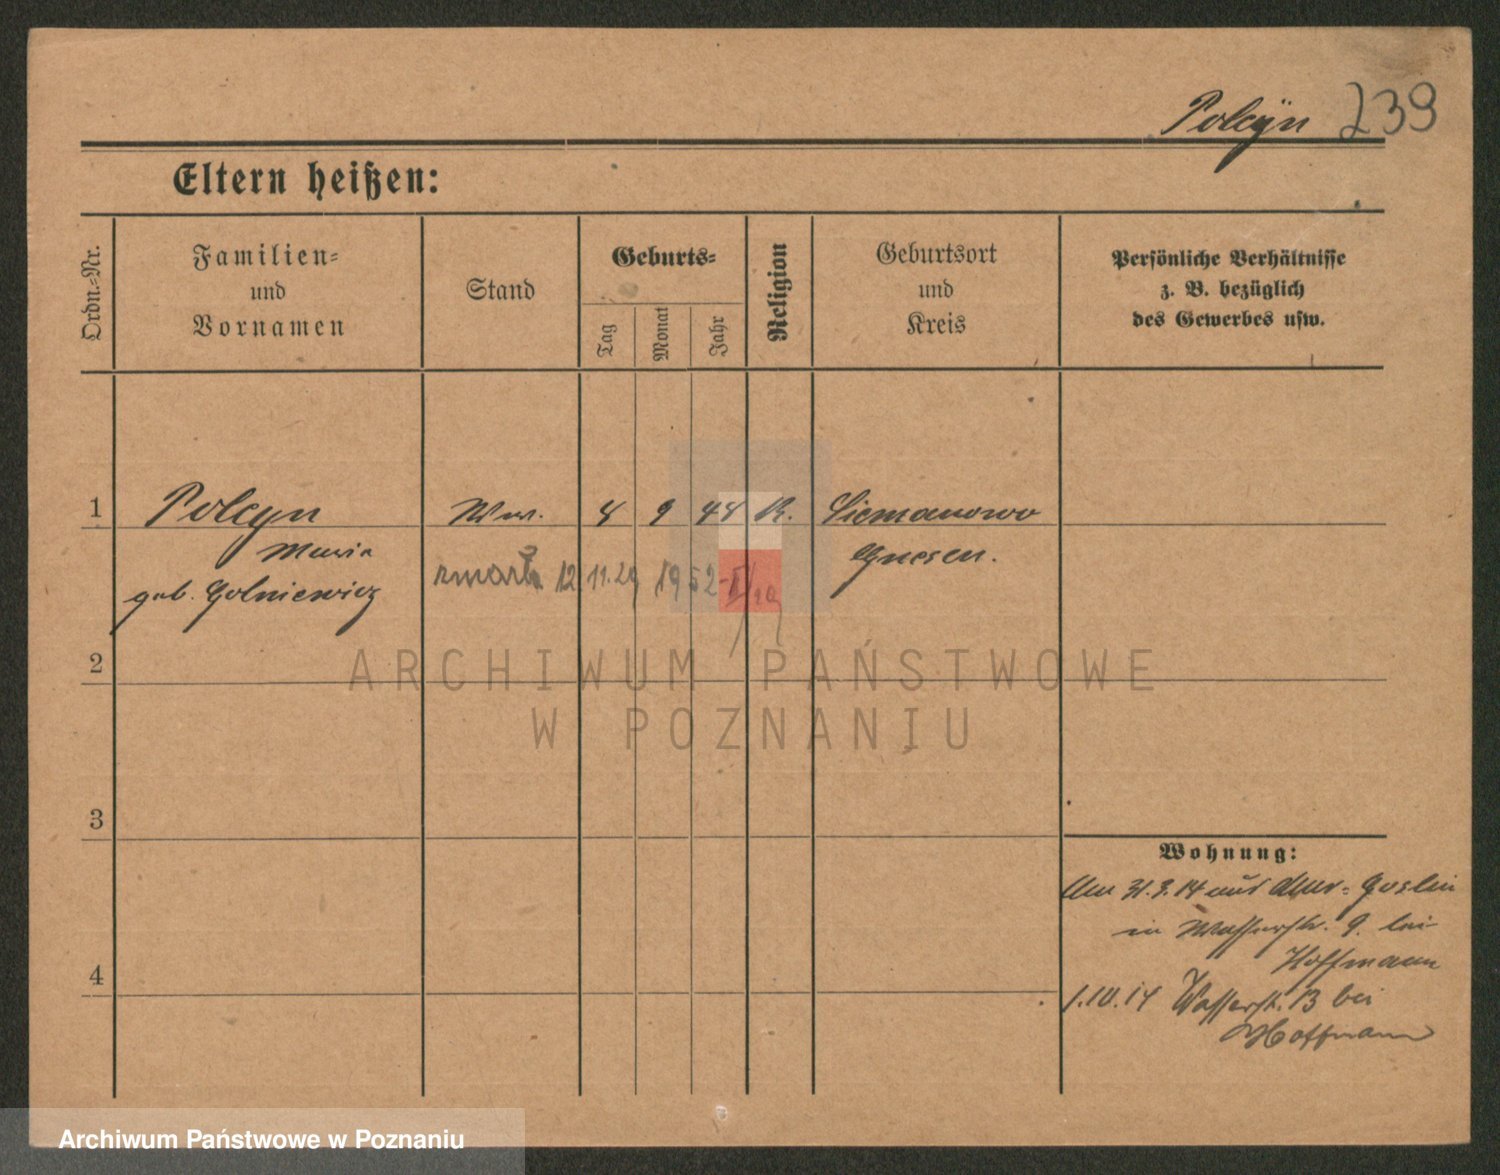 Polcyn 239
Eltern heißen:
Ordn.=Nr.
Familien=
und
Vornamen
Stand
Geburts=
Tag
Monat
Jahr
Religion
Geburtsort
und
Kreis
Persönliche Verhältnisse
z. B. bezüglich
des Gewerbes usw.
1 Polcyn Ww. 8 9 48 K. Siemanowo
Maria Gnesen.
geb. Golniewicz
zmarła 12 11.29 1952
2
ARCHIWUM PAŃSTWOWE
W POZNANIU
3
Wohnung:
31.3.14 aus Goslin
in Wasserstr. 9. bei
4 Hoffmann
1.10.14 Wasserstr. 13 bei
Hoffmann
Archiwum Państwowe w Poznaniu